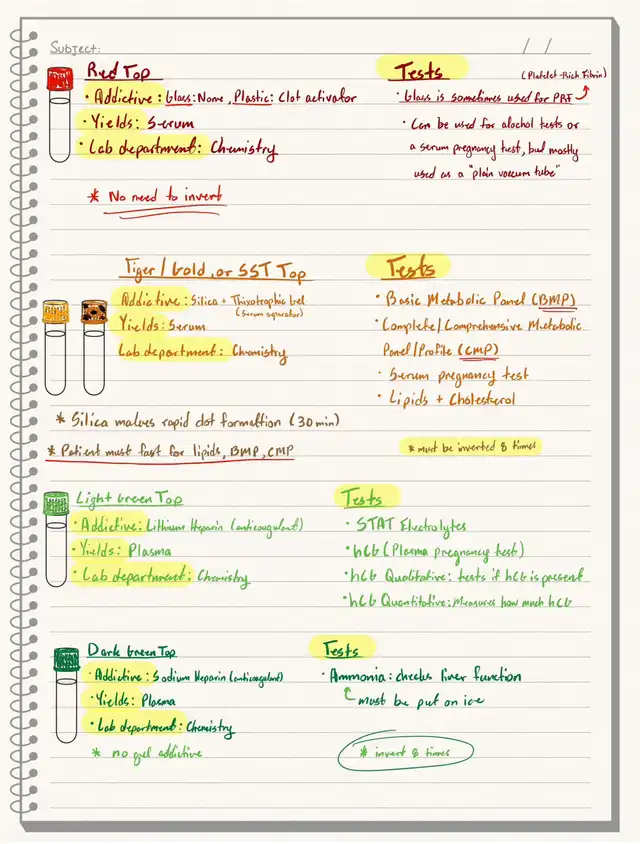 Subject: / /
Red Top
Tests
(Platelet-Rich Fibrin)
• Addictive: Glass: None, Plastic: Clot activator
• Glass is sometimes used for PRF
• Yields: Serum
• Can be used for alochol tests or
• Lab department: Chemistry
a serum pregnancy test, but mostly
used as a "plain vaccum tube"
* No need to invert
Tiger/Gold, or SST Top
Tests
Addictive: Silica + Thixotrophic Gel
(Serum separator)
• Basic Metabolic Panel (BMP)
Yields: Serum
• Complete/Comprehensive Metabolic
Lab department: Chemistry
Panel/Profile (CMP)
• Serum pregnancy test
• Lipids + Cholesterol
* Silica makes rapid clot formattion (30 min)
* Patient must fast for lipids, BMP, CMP
* must be inverted 8 times
Light Green Top
Tests
• Addictive: Lithium Heparin (anticoagulant)
• STAT Electrolytes
• Yields: Plasma
• hCG (Plasma pregnancy test)
• Lab department: Chemistry
• hCG Qualitative: tests if hCG is present
• hCG Quantitative: Measures how much hCG
Dark Green Top
Tests
• Addictive: Sodium Heparin (anticoagulant)
• Ammonia: checks liver function
must be put on ice
• Yields: Plasma
• Lab department: Chemistry
* no gel addictive
* invert 8 times